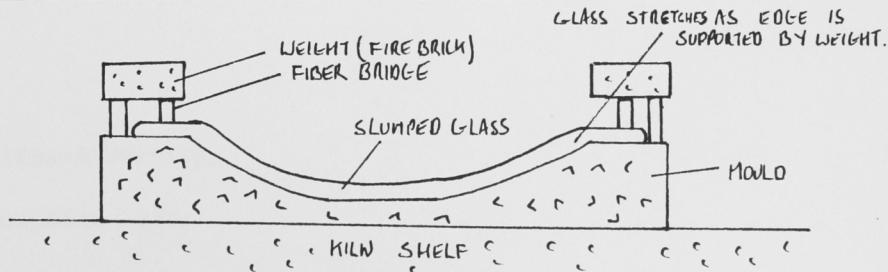 GLASS STRETCHES AS EDGE IS
SUPPORTED BY WEIGHT.
WEIGHT (FIRE BRICK)
FIBER BRIDGE
SLUMPED GLASS
MOULD
KILN SHELF